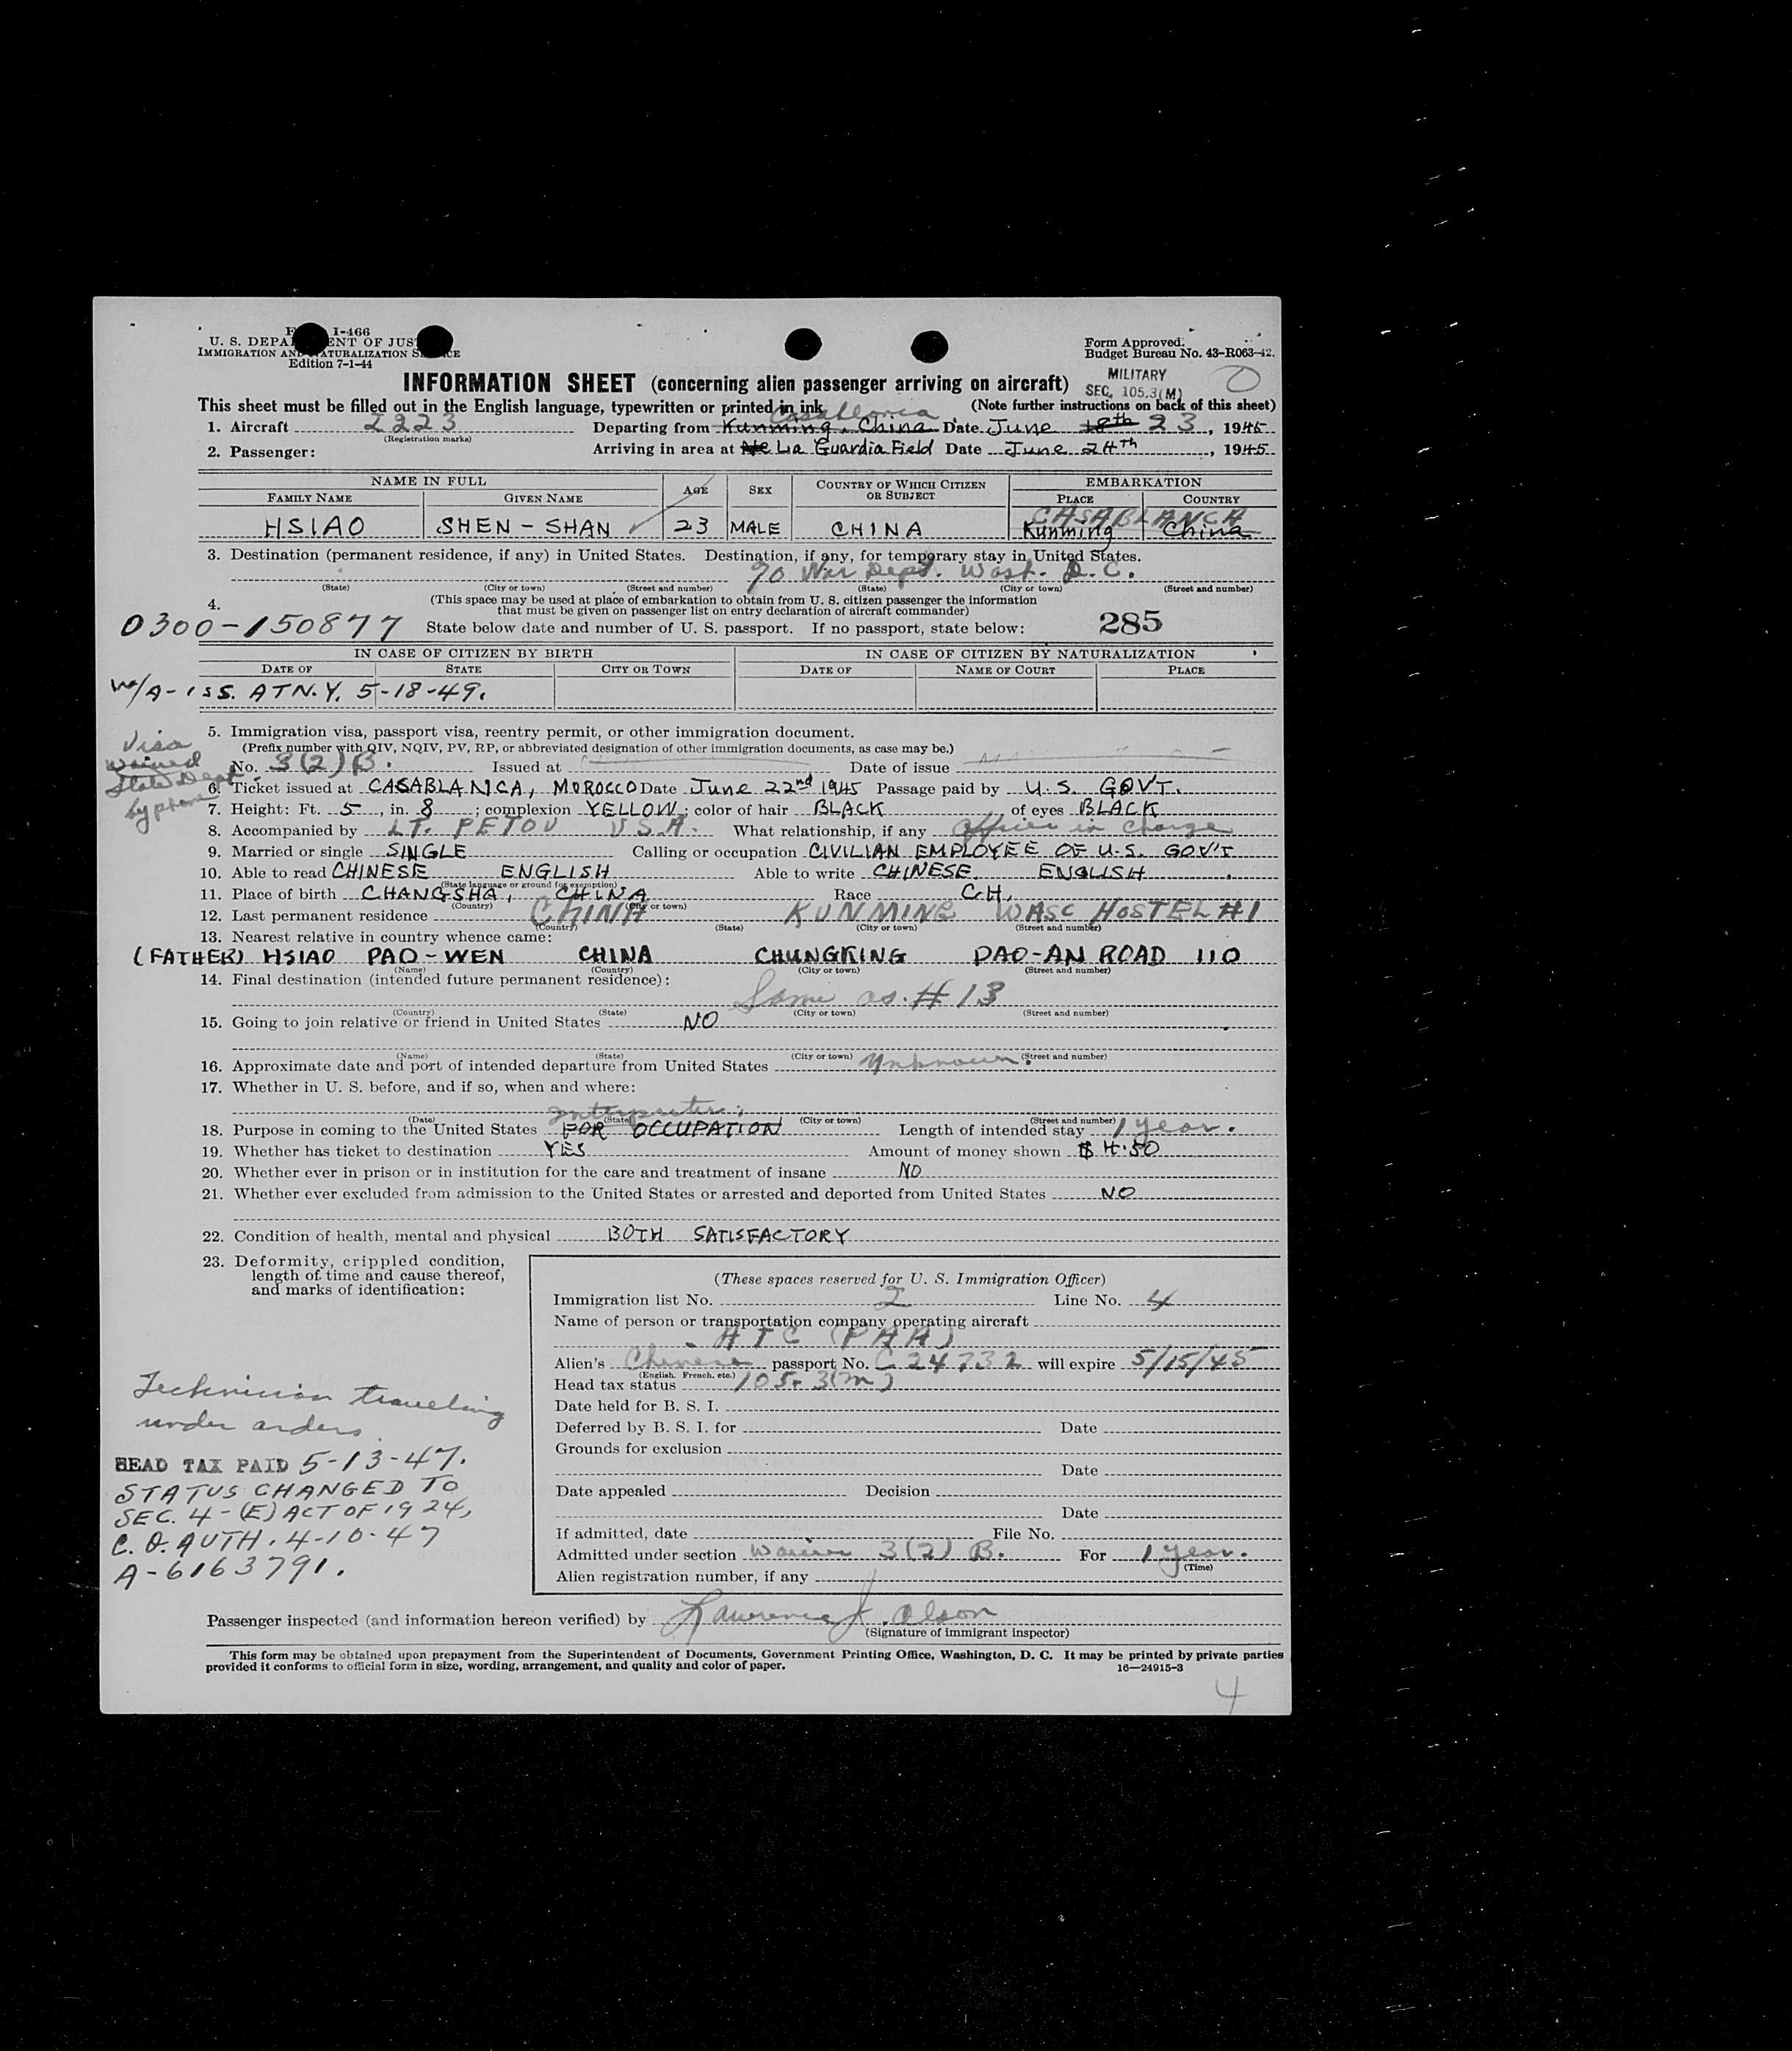 Form I-466
U. S. DEPARTMENT OF JUSTICE
IMMIGRATION AND NATURALIZATION SERVICE
Edition 7-1-44
Form Approved.
Budget Bureau No. 43-R063-42.
MILITARY
SEC. 105.3(M)
INFORMATION SHEET (concerning alien passenger arriving on aircraft)
This sheet must be filled out in the English language, typewritten or printed in ink. (Note further instructions on back of this sheet)
Casablanca
1. Aircraft 2223 Departing from Kunming, China Date June 18th 23, 1945
(Registration marks)
2. Passenger: Arriving in area at La Guardia Field Date June 24th, 1945
NAME IN FULL AGE SEX COUNTRY OF WHICH CITIZEN OR SUBJECT EMBARKATION
FAMILY NAME GIVEN NAME PLACE COUNTRY
CASABLANCA
HSIAO SHEN-SHAN 23 MALE CHINA Kunming China
3. Destination (permanent residence, if any) in United States. Destination, if any, for temporary stay in United States.
% War Dept. Wash. D.C.
(State) (City or town) (Street and number) (State) (City or town) (Street and number)
4. (This space may be used at place of embarkation to obtain from U. S. citizen passenger the information
that must be given on passenger list on entry declaration of aircraft commander)
0300-150877 State below date and number of U. S. passport. If no passport, state below: 285
IN CASE OF CITIZEN BY BIRTH IN CASE OF CITIZEN BY NATURALIZATION
DATE OF STATE CITY OR TOWN DATE OF NAME OF COURT PLACE
A-ISS. AT N.Y. 5-18-49.
5. Immigration visa, passport visa, reentry permit, or other immigration document.
(Prefix number with QIV, NQIV, PV, RP, or abbreviated designation of other immigration documents, as case may be.)
Visa waived State Dept by phone
No. 3(2)B. Issued at Date of issue
6. Ticket issued at CASABLANCA, MOROCCO Date June 22nd 1945 Passage paid by U.S. GOVT.
7. Height: Ft. 5, in. 8; complexion YELLOW; color of hair BLACK of eyes BLACK
8. Accompanied by LT. PETOU U.S.A. What relationship, if any officer in charge
9. Married or single SINGLE Calling or occupation CIVILIAN EMPLOYEE OF U.S. GOV'T
10. Able to read CHINESE ENGLISH Able to write CHINESE, ENGLISH
(State language or ground for exemption)
11. Place of birth CHANGSHA, CHINA Race CH.
(Country) (City or town)
12. Last permanent residence CHINA KUNMING WASC HOSTEL #1
(Country) (State) (City or town) (Street and number)
13. Nearest relative in country whence came:
(FATHER) HSIAO PAO-WEN CHINA CHUNGKING PAO-AN ROAD 110
(Name) (Country) (City or town) (Street and number)
14. Final destination (intended future permanent residence):
Same as #13
(Country) (State) (City or town) (Street and number)
15. Going to join relative or friend in United States NO
(Name) (State) (City or town) (Street and number)
16. Approximate date and port of intended departure from United States Unknown.
17. Whether in U. S. before, and if so, when and where:
(Date) (State) (City or town) (Street and number)
Interpreter;
18. Purpose in coming to the United States FOR OCCUPATION Length of intended stay 1 year.
19. Whether has ticket to destination YES Amount of money shown $4.50
20. Whether ever in prison or in institution for the care and treatment of insane NO
21. Whether ever excluded from admission to the United States or arrested and deported from United States NO
22. Condition of health, mental and physical BOTH SATISFACTORY
23. Deformity, crippled condition,
length of time and cause thereof,
and marks of identification:
Technician traveling
under orders
HEAD TAX PAID 5-13-47.
STATUS CHANGED TO
SEC. 4-(E) ACT OF 1924,
C.O. AUTH. 4-10-47
A-6163791.
(These spaces reserved for U. S. Immigration Officer)
Immigration list No. 2 Line No. 4
Name of person or transportation company operating aircraft
ATC (PAA)
Alien's Chinese passport No. C 24732 will expire 5/15/45
(English, French, etc.)
Head tax status 105.3(m)
Date held for B. S. I.
Deferred by B. S. I. for Date
Grounds for exclusion
Date
Date appealed Decision
Date
If admitted, date File No.
Admitted under section Waiver 3(2)B. For 1 year.
(Time)
Alien registration number, if any
Passenger inspected (and information hereon verified) by Lawrence J. Olson
(Signature of immigrant inspector)
This form may be obtained upon prepayment from the Superintendent of Documents, Government Printing Office, Washington, D. C. It may be printed by private parties
provided it conforms to official form in size, wording, arrangement, and quality and color of paper. 16—24915-3
4